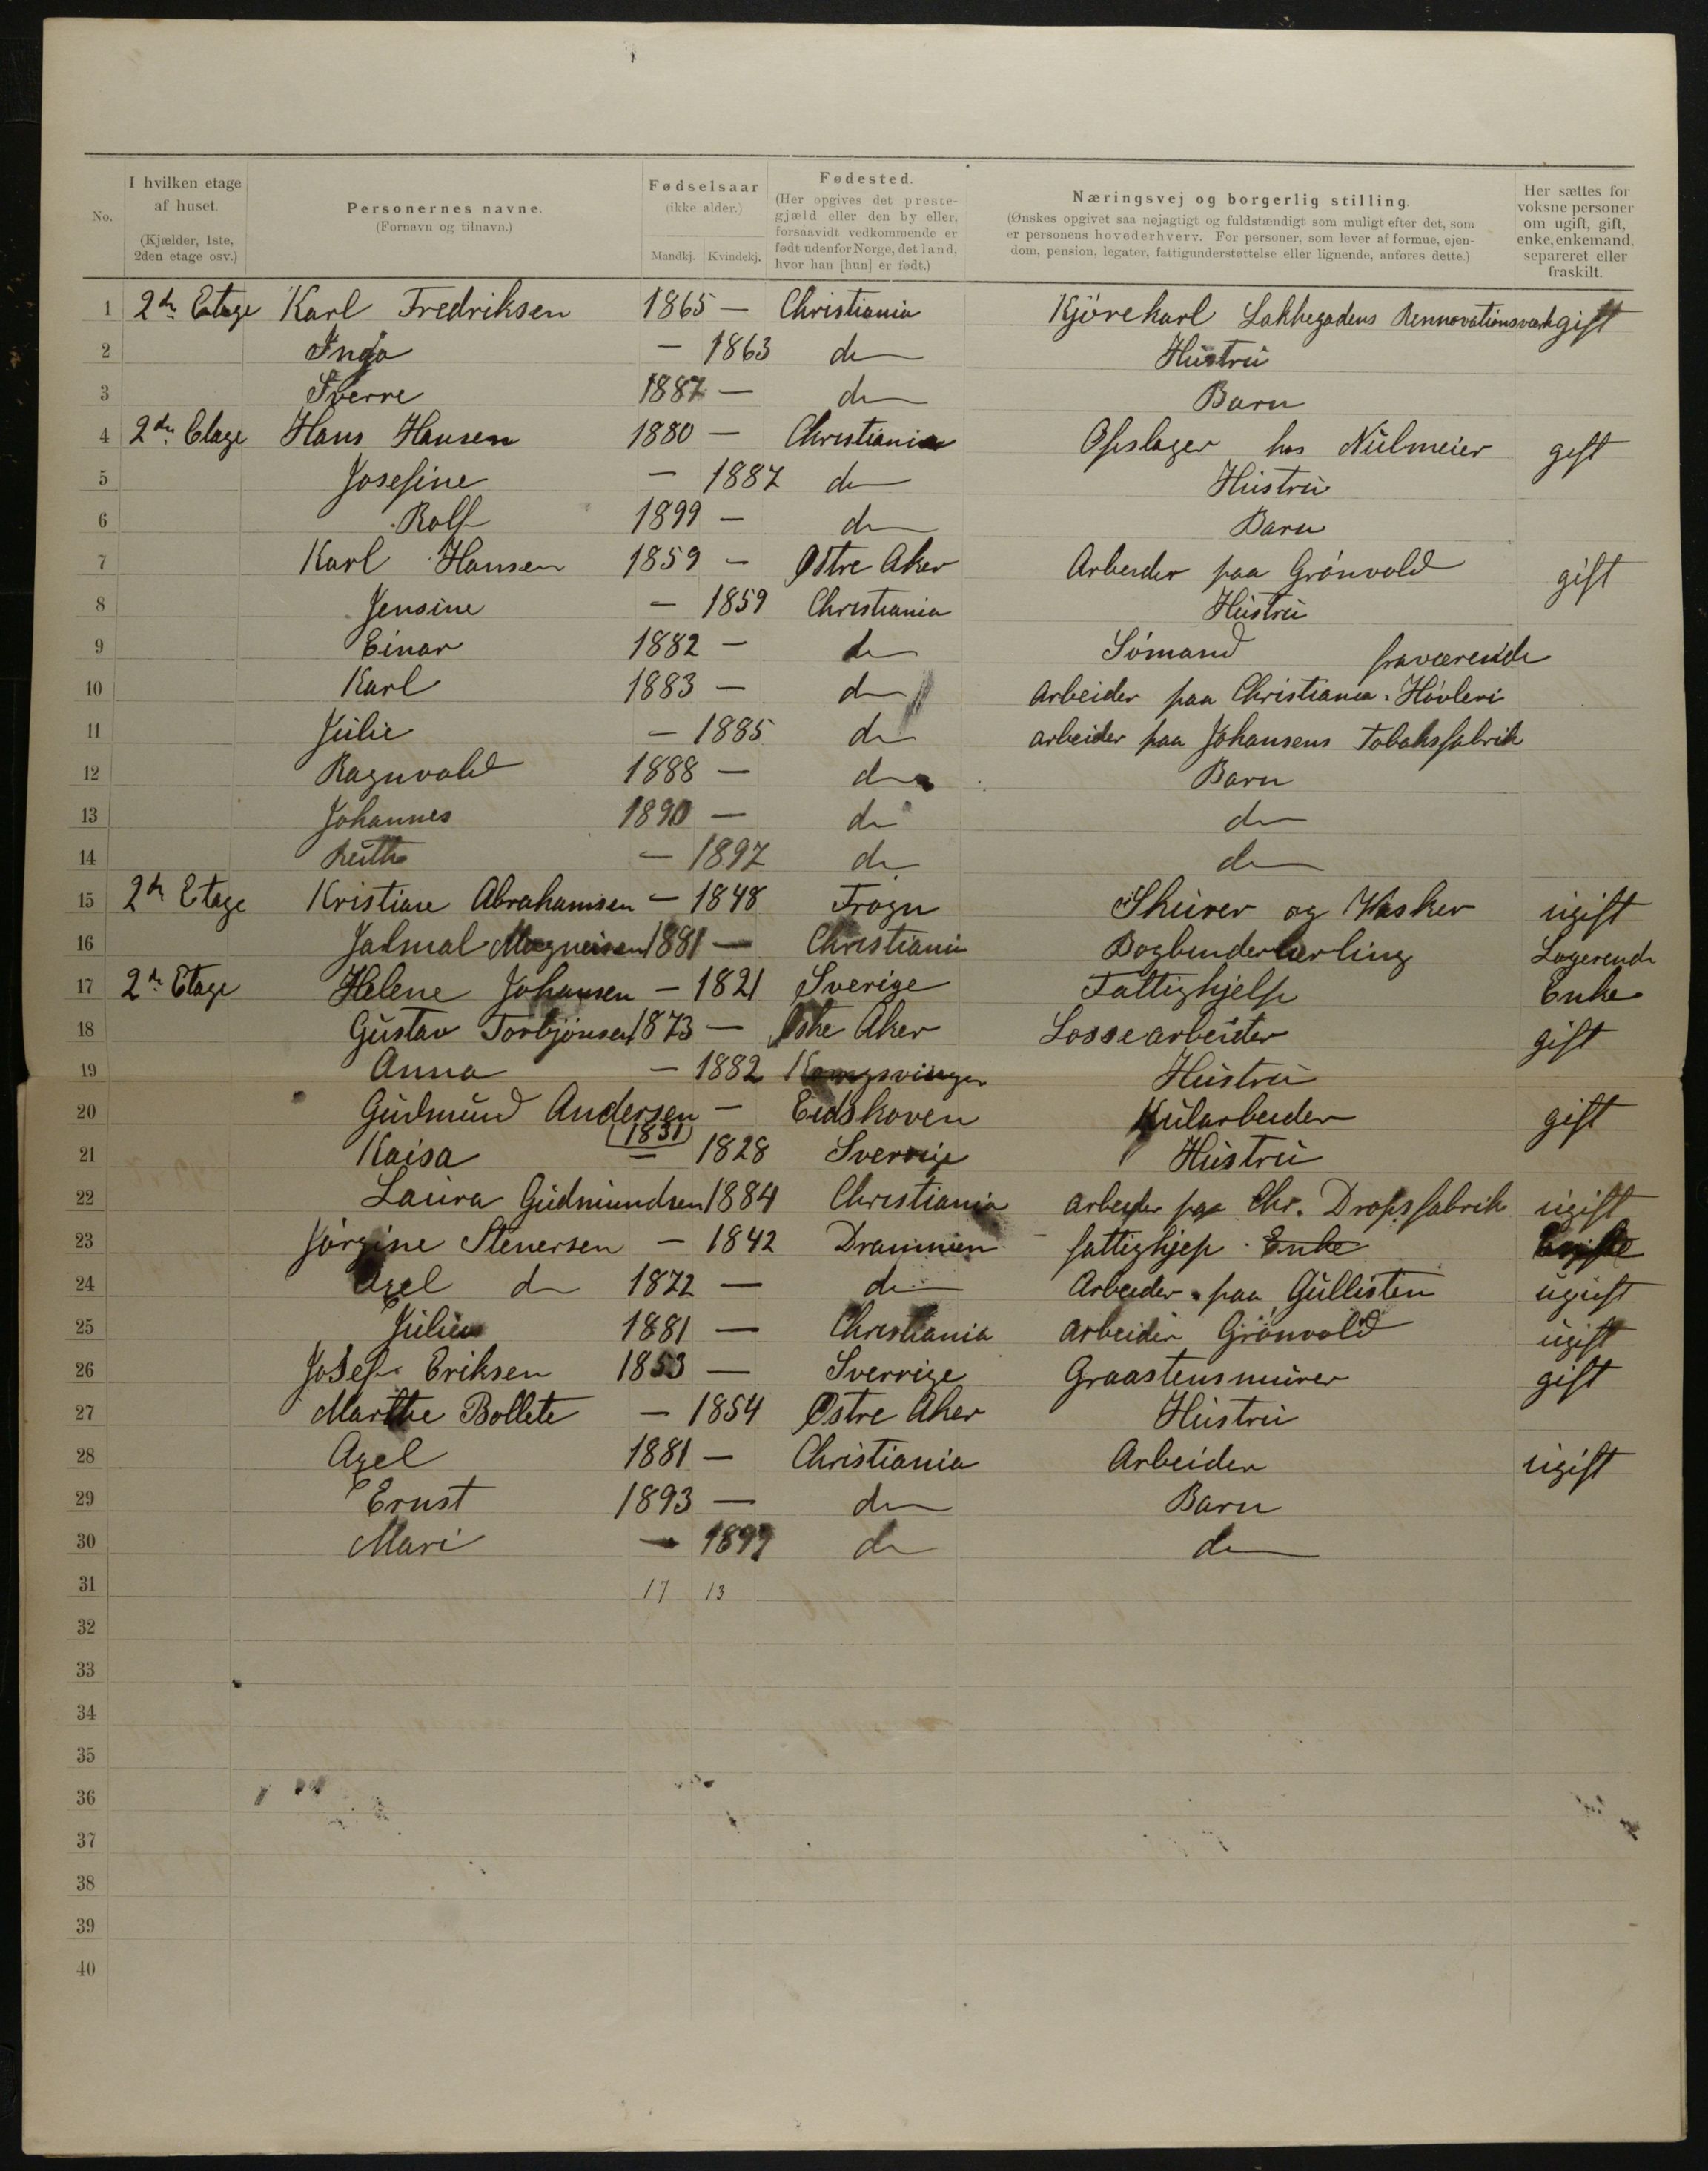 No.
I hvilken etage af huset. (Kjælder, 1ste, 2den etage osv.)
Personernes navne. (Fornavn og tilnavn.)
Fødselsaar (ikke alder.) Mandkj. Kvindekj.
Fødested. (Her opgives det prestegjæld eller den by eller, forsaavidt vedkommende er født udenfor Norge, det land, hvor han [hun] er født.)
Næringsvej og borgerlig stilling. (Ønskes opgivet saa nøjagtigt og fuldstændigt som muligt efter det, som er personens hovederhverv. For personer, som lever af formue, ejendom, pension, legater, fattigunderstøttelse eller lignende, anføres dette.)
Her sættes for voksne personer om ugift, gift, enke, enkemand, separeret eller fraskilt.
1 2dn Etage Karl Fredriksen 1865 — Christiania Kjörekarl Lakkegadens Rennovationsværk gift
2 Inga — 1863 do Hustru
3 Sverre 1887 — do Barn
4 2dn Etage Hans Hansen 1880 — Christiania Opslager hos Nülmeier gift
5 Josefine — 1887 do Hustru
6 Rolf 1899 — do Barn
7 Karl Hansen 1859 — Østre Aker Arbeider paa Grönvold gift
8 Jensine — 1859 Christiania Hustru
9 Einar 1882 — do Sömand fraværende
10 Karl 1883 — do arbeider paa Christiania Hövleri
11 Julie — 1885 do arbeider paa Johansens Tobaksfabrik
12 Ragnvald 1888 — do Barn
13 Johannes 1890 — do do
14 Ruth — 1897 do do
15 2dn Etage Kristiane Abrahamsen — 1848 Frogn Skurer og Vasker ugift
16 Jalmal Magneisen 1881 — Christiania Bogbinderlærling Logerende
17 2dn Etage Helene Johansen — 1821 Sverige Fattighjelp Enke
18 Gustav Torbjönsen 1873 — Østre Aker Lossearbeider gift
19 Anna — 1882 Kongsvinger Hustru
20 Gudmund Andersen — Eidskoven Kularbeider gift
(1831)
21 Kaisa — 1828 Sverrige Hustru
22 Laura Gudmundsen 1884 Christiania arbeider paa Chr. Dropsfabrik ugift
23 Jörgine Stenersen — 1842 Drammen fattighjep Enke
24 Axel do 1872 — do Arbeider paa Gullisten ugift
25 Julius 1881 — Christiania arbeider Grönvold ugift
26 Josef Eriksen 1853 — Sverrige Graastensmurer gift
27 Marthe Bollete — 1854 Østre Aker Hustru
28 Axel 1881 — Christiania Arbeider ugift
29 Ernst 1893 — do Barn
30 Mari — 1897 do do
31 17 13
32
33
34
35
36
37
38
39
40